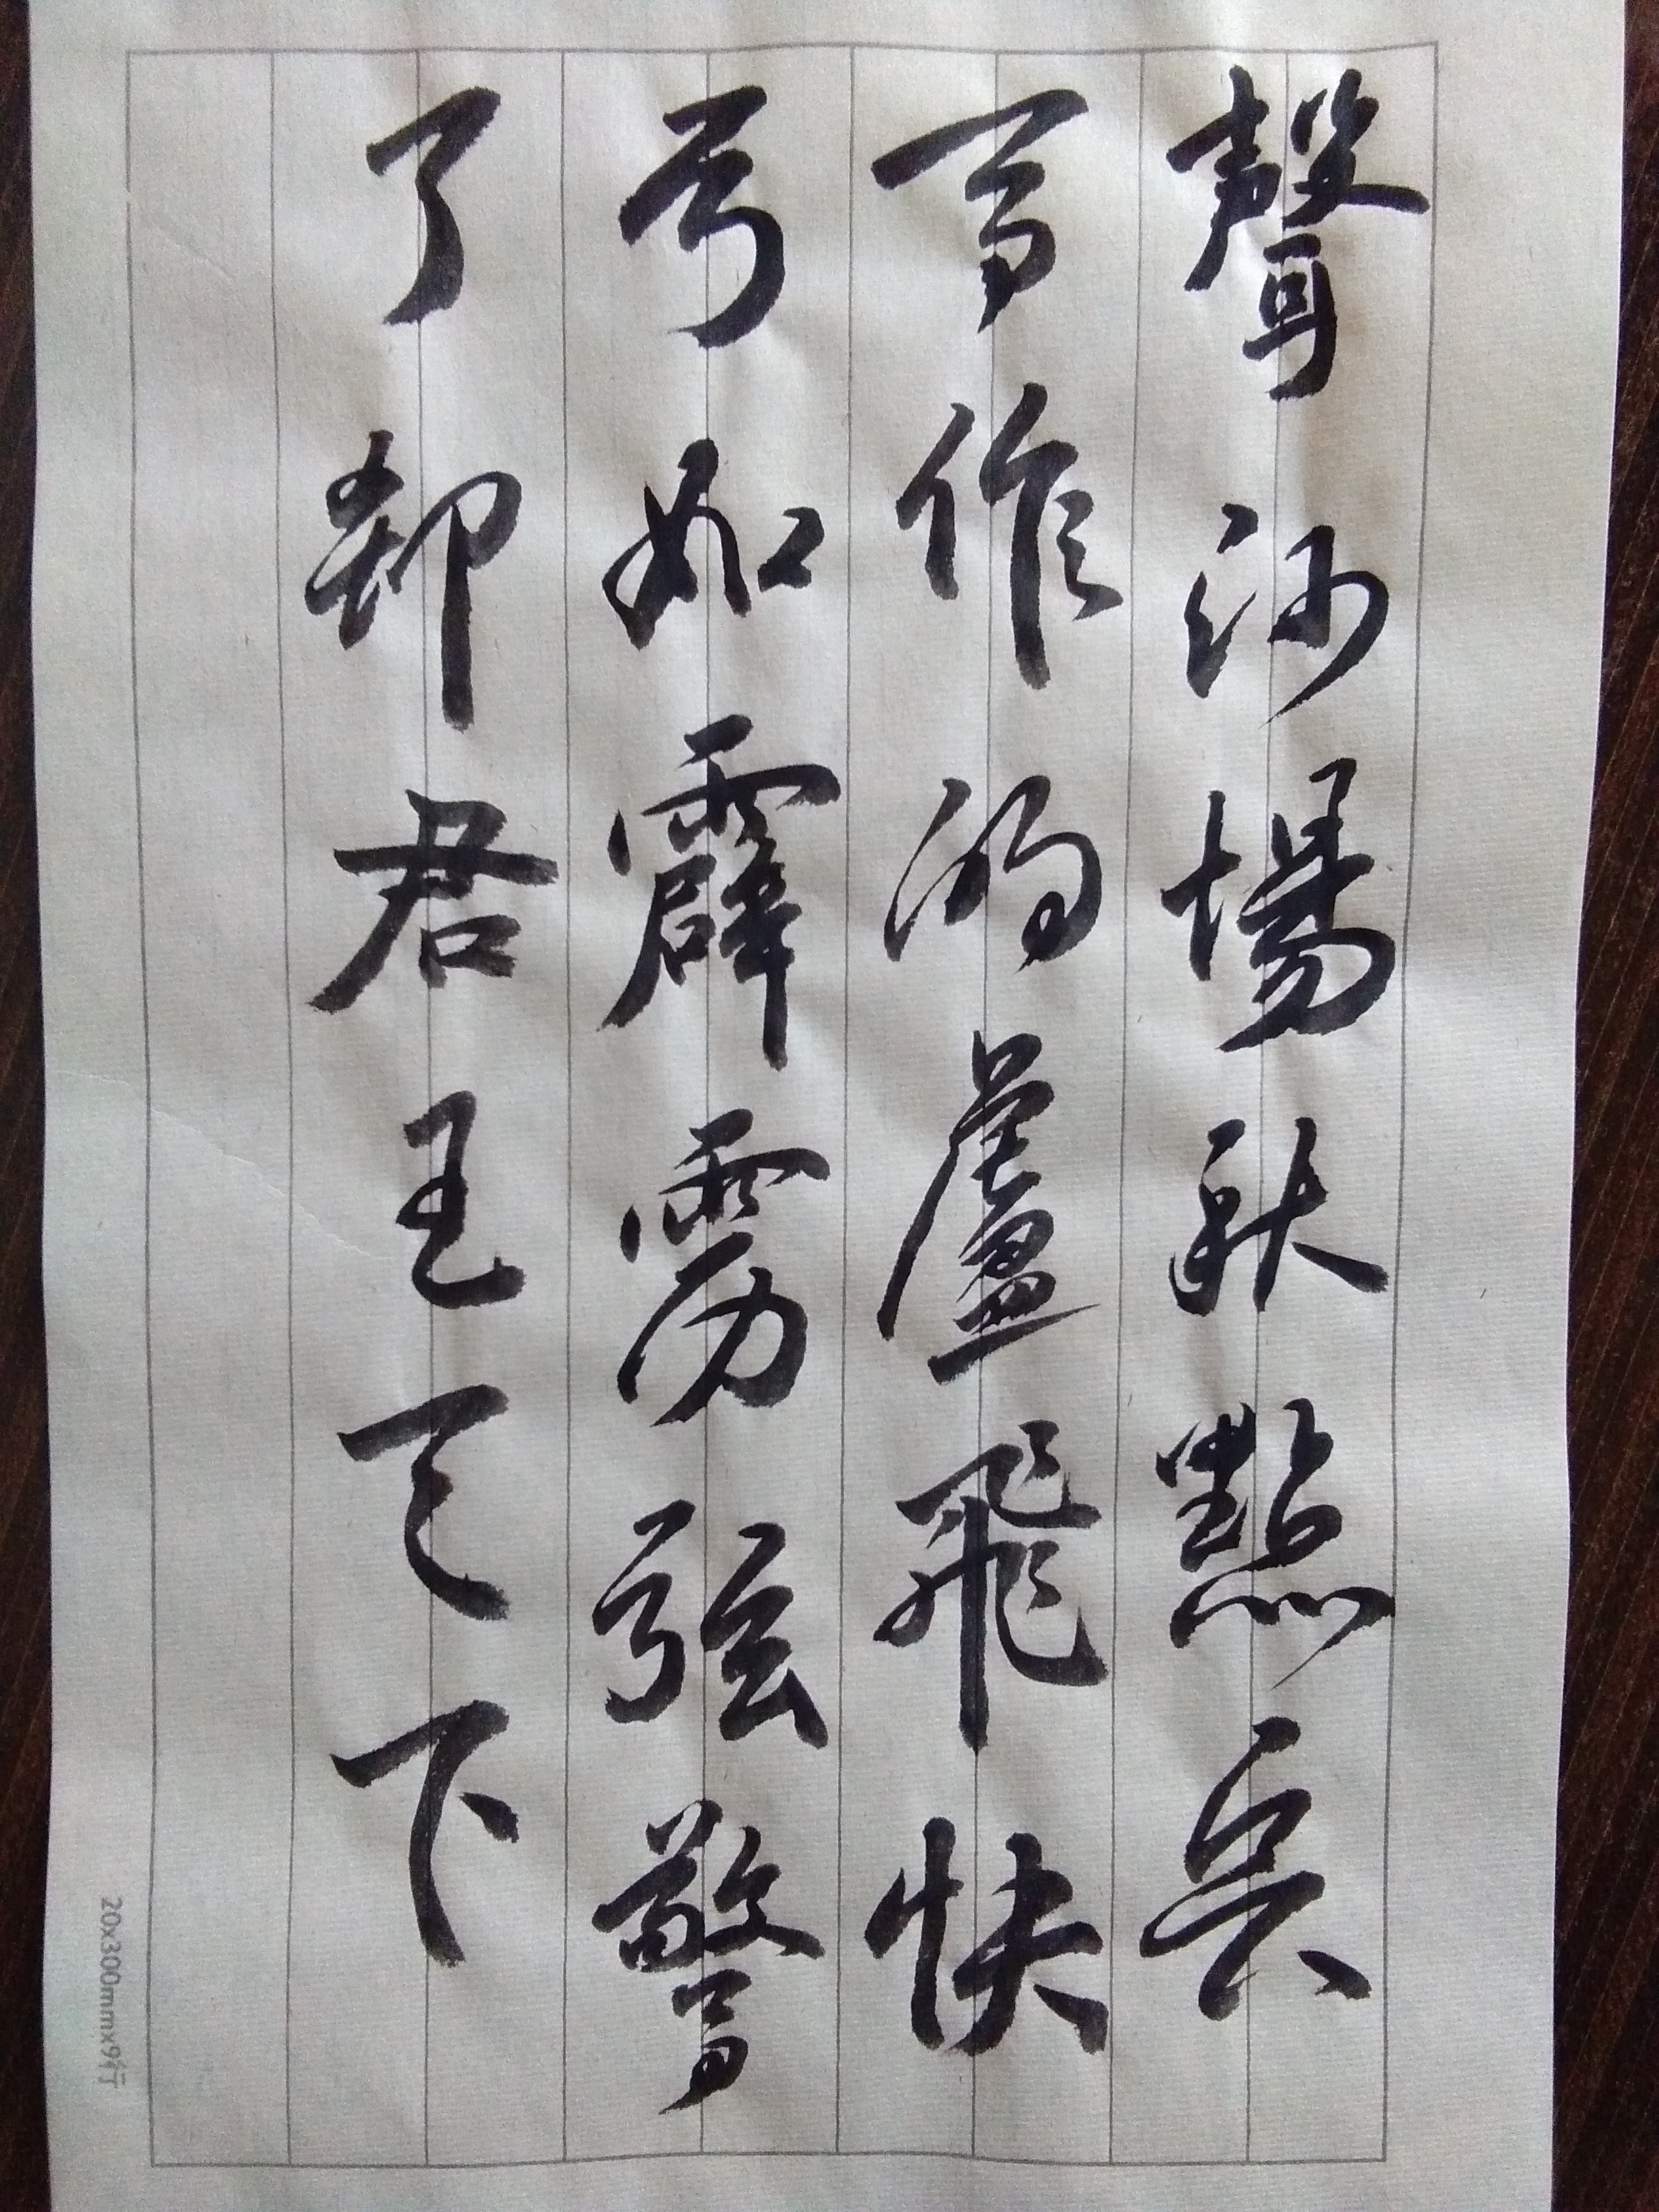 聲沙場秋點兵
馬作的盧飛快
弓如霹雳弦驚
了却君王天下
20x300mmx9行